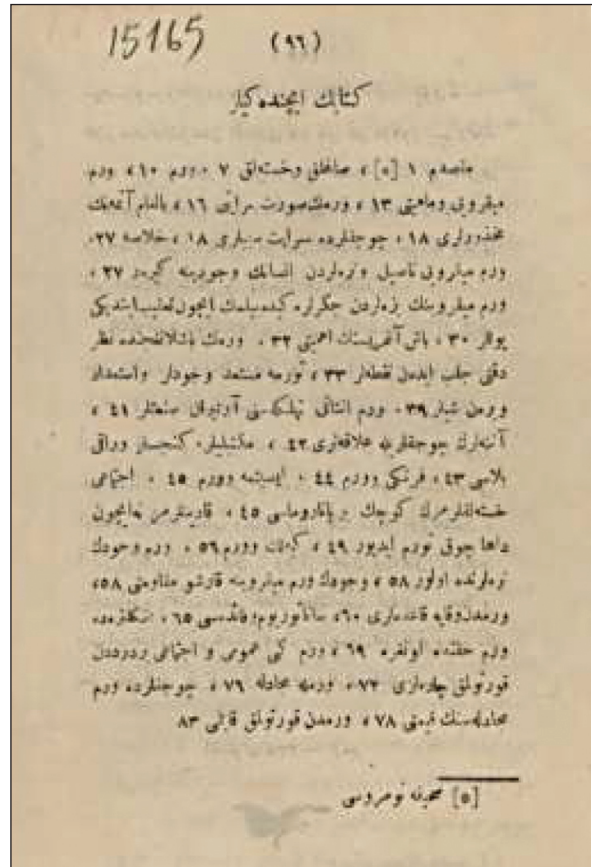 15165
(٩٦)
كتابك ايچنده كيلر
مقصدم ١ [*]، صاغلق وخسته‌لق ٧ ، ورم ١٠، ورم
ميقروبى وماهيتى ١٣ ، ورمك صورت سرايتى ١٦ ،
محذورلرى ١٨ ، چوجقلرده سرايت سببلرى ١٨ ، خلاصه ٢٧،
ورم ميقروبى ناصيل ونره‌لردن انسانك وجودينه كيرر ٢٧ ،
ورم ميقروبنك نره‌لردن جكرلره كيده‌بيلمك ايچون تعقيب ايتديكى
يوللر ٣٠ ، باش اهميتى ٣٢ ، ورمك باشلانغجنده نظر
دقتى جلب ايدن نقطه‌لر ٣٣ ، تورمه مستعد وجودلر واستعداد
ويرن شيلر ٣٩، ورم انتانى تهلكه‌سنى آرتيران صنعتلر ٤١ ،
آننه‌لرك چوجقلريله علاقه‌لرى ٤٢ ، مكتبليلر، كنجلر وراقى
بلاسى ٤٣ ، فرنكى وورم ٤٤ ، ايسيتمه وورم ٤٥ ، اجتماعى
خسته‌لقلرمزك كوچك بر پانوراماسى ٤٥ ، قادينلرمز نه‌ايچون
داها چوق تورم ايديور ٤٩ ، وورم ٥٦ ، ورم وجودك
نره‌لرنده اولور ٥٨ ، وجودك ورم ميقروبنه قارشو مقاومتى ٥٨،
ورمدن وقايه قاعده‌لرى ٦٠، ساناتوريوم وفائده‌سى ٦٥،
ورم حقنده ٦٩ ، ورم كبى عمومى و اجتماعى بر دردن
قورتولق چاره‌لرى ٧٢، ورمله مجادله ٧٦ ، چوجقلرده ورم
مجادله‌سنك قيمتى ٧٨ ، ورمدن قورتولق قابلى ٨٣
[*] صحيفه نومروسى